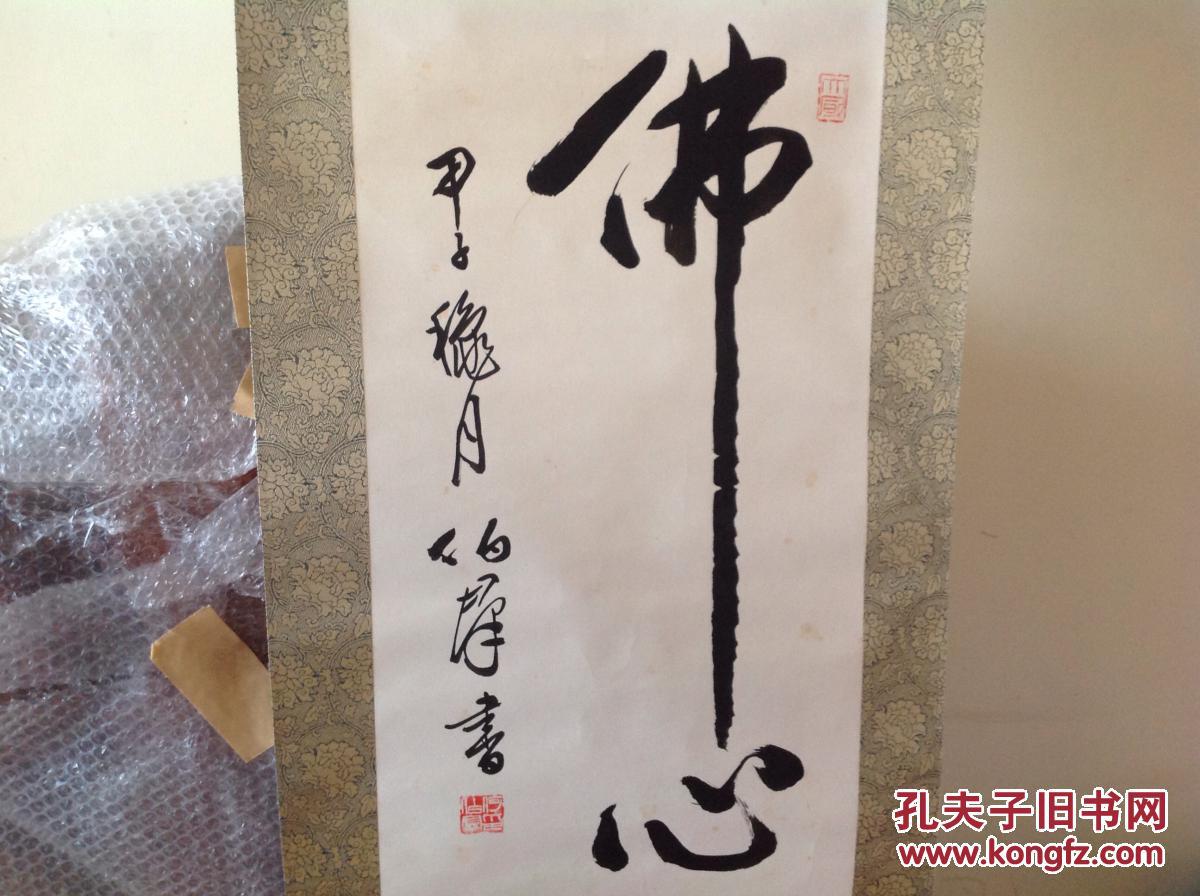 佛心
甲子穐月伯群書
孔夫子旧书网
www.kongfz.com